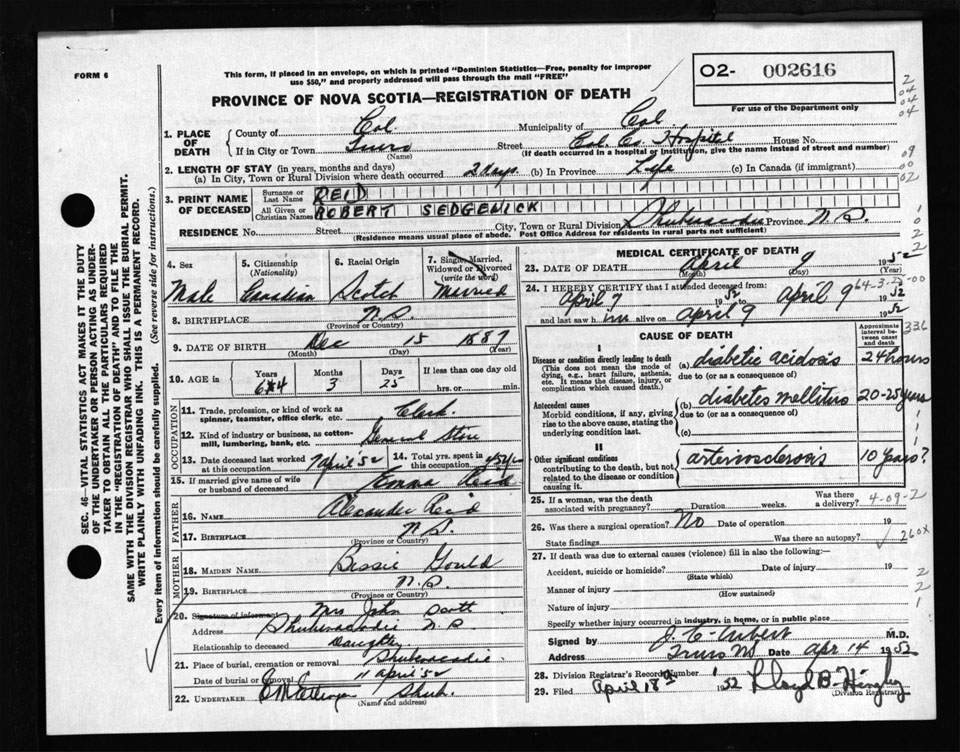 FORM 6
This form, if placed in an envelope, on which is printed "Dominion Statistics—Free, penalty for improper use $50," and properly addressed will pass through the mail "FREE"
02- 002616
For use of the Department only
PROVINCE OF NOVA SCOTIA—REGISTRATION OF DEATH
1. PLACE OF DEATH County of Col. Municipality of Col.
If in City or Town Truro (Name) Street Col. Co. Hospital House No.
(If death occurred in a hospital or institution, give the name instead of street and number)
2. LENGTH OF STAY (in years, months and days)
(a) In City, Town or Rural Division where death occurred 2 days. (b) In Province Life (c) In Canada (if immigrant)
3. PRINT NAME OF DECEASED
Surname or Last Name REID
All Given or Christian Names ROBERT SEDGEWICK
RESIDENCE No. Street City, Town or Rural Division Shubenacadie Province N.S.
(Residence means usual place of abode. Post Office Address for residents in rural parts not sufficient)
4. Sex Male
5. Citizenship (Nationality) Canadian
6. Racial Origin Scotch
7. Single, Married, Widowed or Divorced (write the word) Married
8. BIRTHPLACE N.S. (Province or Country)
9. DATE OF BIRTH Dec 15 1887
(Month) (Day) (Year)
10. AGE in Years 64 Months 3 Days 25 If less than one day old hrs. or min.
OCCUPATION
11. Trade, profession, or kind of work as spinner, teamster, office clerk, etc. Clerk.
12. Kind of industry or business, as cotton-mill, lumbering, bank, etc. General Store
13. Date deceased last worked at this occupation 7 April '52 14. Total yrs. spent in this occupation
15. If married give name of wife or husband of deceased Emma Reid
FATHER
16. NAME Alexander Reid
17. BIRTHPLACE N.S. (Province or Country)
MOTHER
18. MAIDEN NAME Bessie Gould
19. BIRTHPLACE N.S. (Province or Country)
20. Signature of informant Mrs John Scott
Address Shubenacadie N.S
Relationship to deceased Daughter
21. Place of burial, cremation or removal Shubenacadie
Date of burial or removal 11 April '52
22. UNDERTAKER Shub.
(Name and address)
MEDICAL CERTIFICATE OF DEATH
23. DATE OF DEATH April 9 1952
(Month) (Day) (Year)
24. I HEREBY CERTIFY that I attended deceased from:
April 7 1952 to April 9 1952
and last saw him alive on April 9 1952
CAUSE OF DEATH
Approximate interval between onset and death
I
Disease or condition directly leading to death (This does not mean the mode of dying, e.g., heart failure, asthenia, etc. It means the disease, injury, or complication which caused death.)
(a) diabetic acidosis 24 hours
due to (or as a consequence of)
Antecedent causes
Morbid conditions, if any, giving rise to the above cause, stating the underlying condition last.
(b) diabetes mellitus 20-25 years
due to (or as a consequence of)
(c)
II
Other significant conditions contributing to the death, but not related to the disease or condition causing it.
arteriosclerosis 10 years?
25. If a woman, was the death associated with pregnancy? Duration weeks Was there a delivery?
4-09-2
26. Was there a surgical operation? No Date of operation 19
State findings Was there an autopsy?
260X
27. If death was due to external causes (violence) fill in also the following:—
Accident, suicide or homicide? (State which) Date of injury 19
Manner of injury (How sustained)
Nature of injury
Specify whether injury occurred in industry, in home, or in public place
Signed by M.D.
Address Truro NS Date Apr 14 1952
28. Division Registrar's Record Number
29. Filed April 18 1952 Lloyd B. Hingley
(Division Registrar)
SEC. 46—VITAL STATISTICS ACT MAKES IT THE DUTY OF THE UNDERTAKER OR PERSON ACTING AS UNDERTAKER TO OBTAIN ALL THE PARTICULARS REQUIRED IN THE "REGISTRATION OF DEATH" AND TO FILE THE SAME WITH THE DIVISION REGISTRAR WHO SHALL ISSUE THE BURIAL PERMIT.
WRITE PLAINLY WITH UNFADING INK. THIS IS A PERMANENT RECORD.
Every item of information should be carefully supplied. (See reverse side for instructions.)